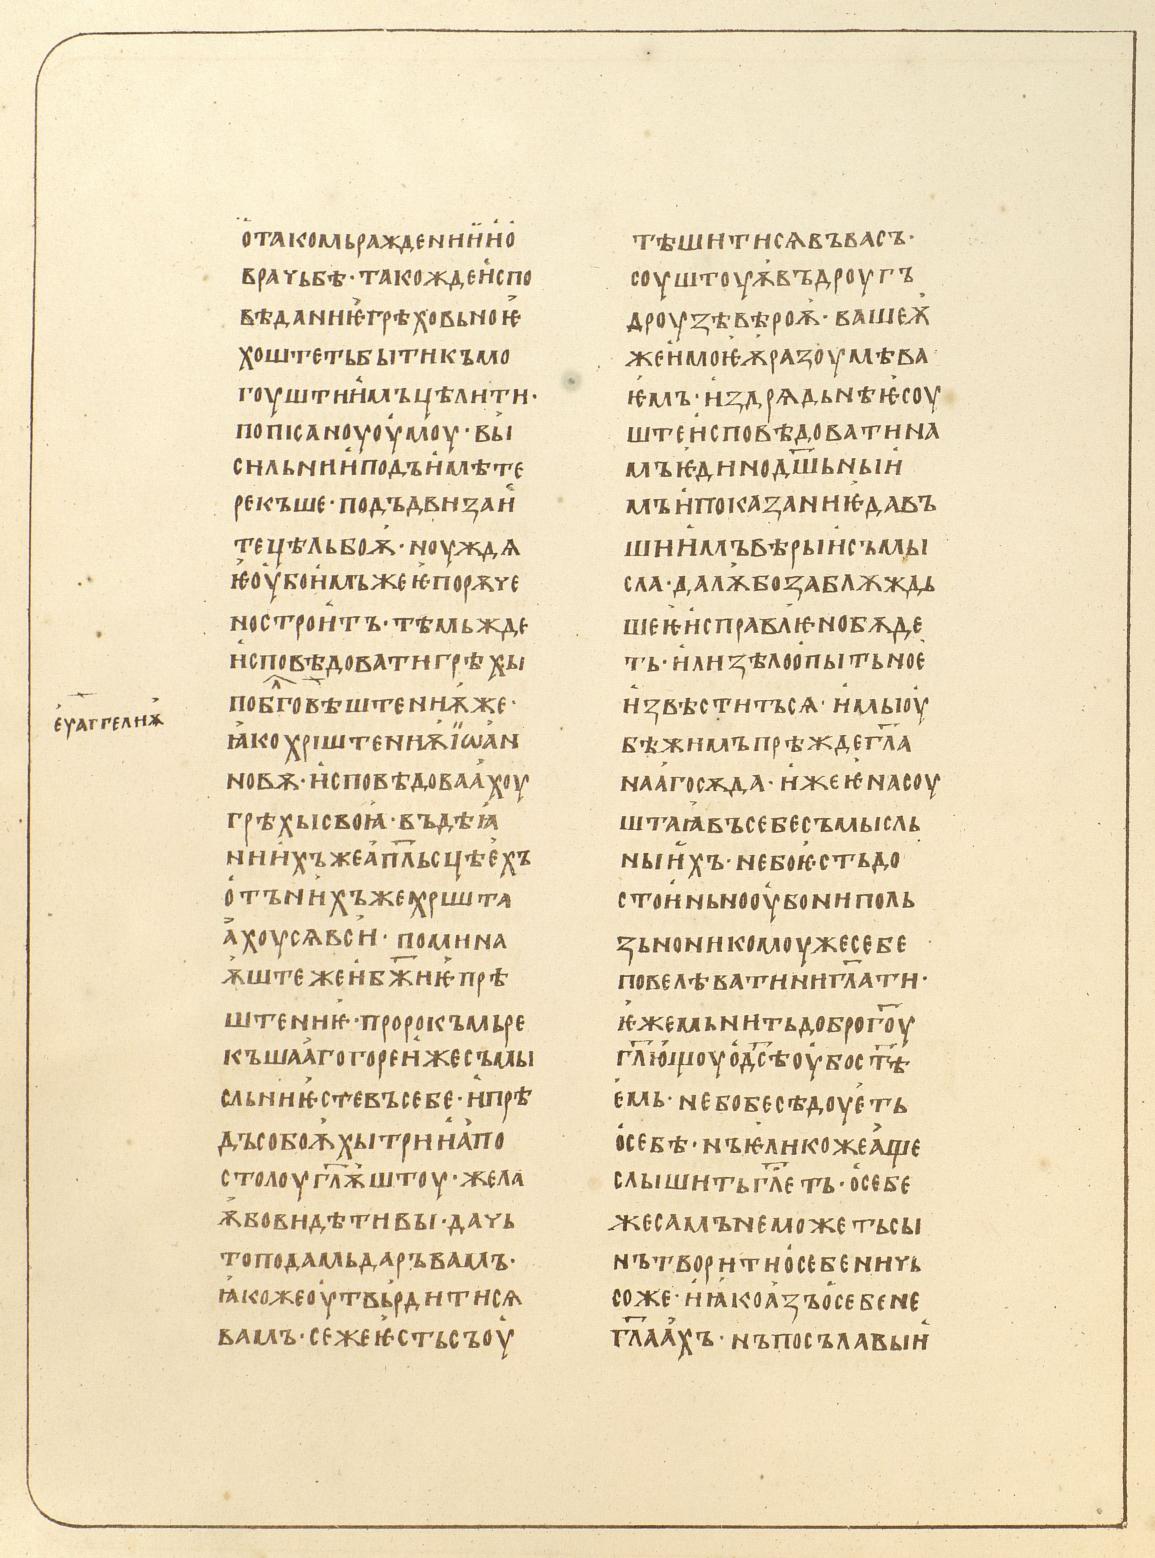 отакомьраждениино
врачьбѣ·такождеиспо
вѣданиѥгрѣховьноѥ
хоштетьбытикъмо
гоуштиимъцѣлити·
попїсаноуоумоу·вы
сильнииподъимѣте
рекъше·подъдвизаи
тецѣльбоѫ·ноуждѧ
ѥоубоимъжеѥпорѫче
ностроитъ·тѣмьжде
исповѣдоватигрѣхы
побл҃говѣштениѫже·
ѥуаггелиѫ
ꙗкохрїштениѫїѡан
новѫ·исповѣдоваахоу
грѣхысвоꙗ·въдѣꙗ
ниихъжеап҃льсцѣехъ
отънихъжехршта
ахоусѧвси·помина
ѫштежеиб҃жиѥпрѣ
штениѥ·пророкъмьре
къшаагогореижесъмы
сльниѥстевъсебе·ипрѣ
дъсобоѫхытриинапо
столоугл҃ѫштоу·жела
ѫбовидѣтивы·дачь
топодамьдаръвамъ·
ꙗкожеоутвьрдитисѧ
вамъ·сежеѥстьсъоу
тѣшитисѧвъвасъ·
соуштоуѭвъдроугъ
дроузѣвѣроѭ·вашеѭ
жеимоѥѭразоумѣва
ѥмъ·издрѧдьнѣѥсоу
штеисповѣдоватина
мъѥдинодш҃ьныи
мъипоказаниѥдавъ
шиимъвѣрыисъмы
сла·далѫбозаблѫждь
шеѥисправлѥнобѫде
ть·илизѣлоопытьное
извѣститьсѧ·имьыоу
бѣжимъпрѣждегл҃а
наагосѫда·ижеѥнасоу
штаꙗвъсебесъмысль
ныихъ·небоѥстьдо
стоиньнооубониполь
зьнониколоужесебе
повелѣватинигл҃ати·
ѥжемьнитьдоброг҃оу
гл҃ющюуод҃сѣоубост҃ѣ
емь·небобесѣдоуеть
осебѣ·нъѥликожеаще
слышитьгл҃еть·осебе
жесамънеможетьсы
нътворитиосебеничь
соже·иꙗкоазъосебене
гл҃аахъ·нъпосълавыи